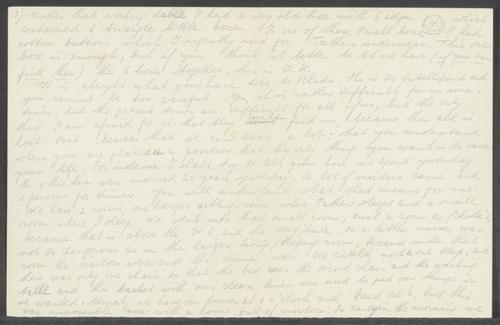 2) under that working table I had a very old box with 6 edges which
contained 6 triangle little boxes. In one of these small boxes I had
cotton buttons which I use for Father's underwear. This one
box is enough, but if you think it better to let me have (if you can
find them) the 6 boxes together, this is O.K.
It is alright what you have told to Rhoda. He is so intelligent and
you cannot be too careful. Yes, it is rather difficult for us now a
times, but the present times are difficult for all of us, but the only
thing I am afraid for is that they would find us because then all is
lost. But besides that we can bear a lot; that you understand
when you are placed in a position that the only thing you want is to save
your life. For instance I shall try to tell you how we spend yesterday
the were married 20 years yesterday. A lot of visitors came and
5 persons for dinner. You will understand what that means for us.
We have 2 rooms, one larger sitting-room where Father sleeps and a small
room where I sleep. We went into that small room, such a room as Rhoda's,
because that is above the W.C. and the vestibule, so a little noise was
not so dangerous as in the larger living/sleeping room, because under that
room the visitors were and the dinner was. We could not one step, and
there was only one chair, so that the bed was the second chair and the washing
table and the basket with our clean linen are used to put our things on
we wanted. Usually we have our dinner at 1 o'clock and bread at 6, but this
was impossible now with a house full of visitors; so early in the morning we